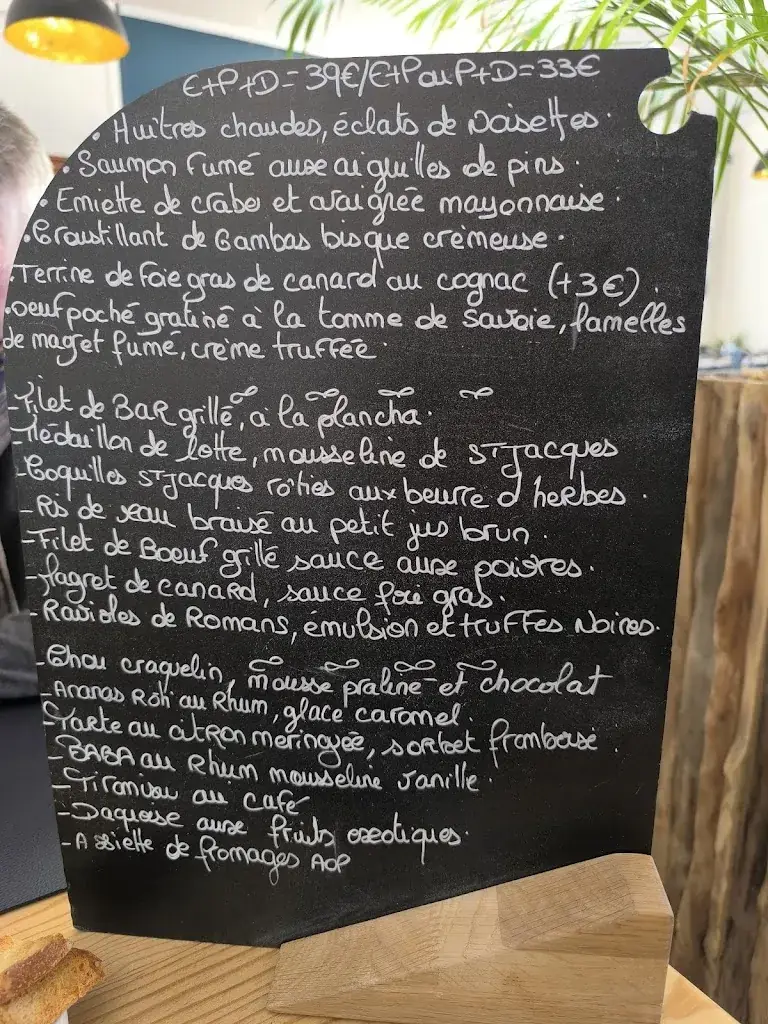 E+P+D=39€/E+P ou P+D=33€
• Huîtres chaudes, éclats de Noisettes.
• Saumon Fumé aux aiguilles de pins.
• Emiette de crabe et araignée mayonnaise.
• Croustillant de Gambas bisque crèmeuse.
• Terrine de foie gras de canard au cognac (+3€).
• oeuf poché gratiné à la tomme de Savoie, lamelles
de magret fumé, crème truffée.
- Filet de BAR grillé, à la plancha.
- Médaillon de lotte, mousseline de ST Jacques
- Coquilles ST Jacques rôties aux beurre d'herbes.
- Ris de veau braisé au petit jus brun.
- Filet de Boeuf grillé sauce aux poivres.
- Magret de canard, sauce foie gras.
- Ravioles de Romans, émulsion et truffes Noires.
- Chou craquelin, mousse praliné et chocolat
- Ananas Rôti au Rhum, glace caramel.
- Tarte au citron meringuée, sorbet framboise.
- BABA au Rhum mousseline vanille.
- Tiramisu au café
- Daquoise aux fruits exotiques.
- Assiette de fromages AOP